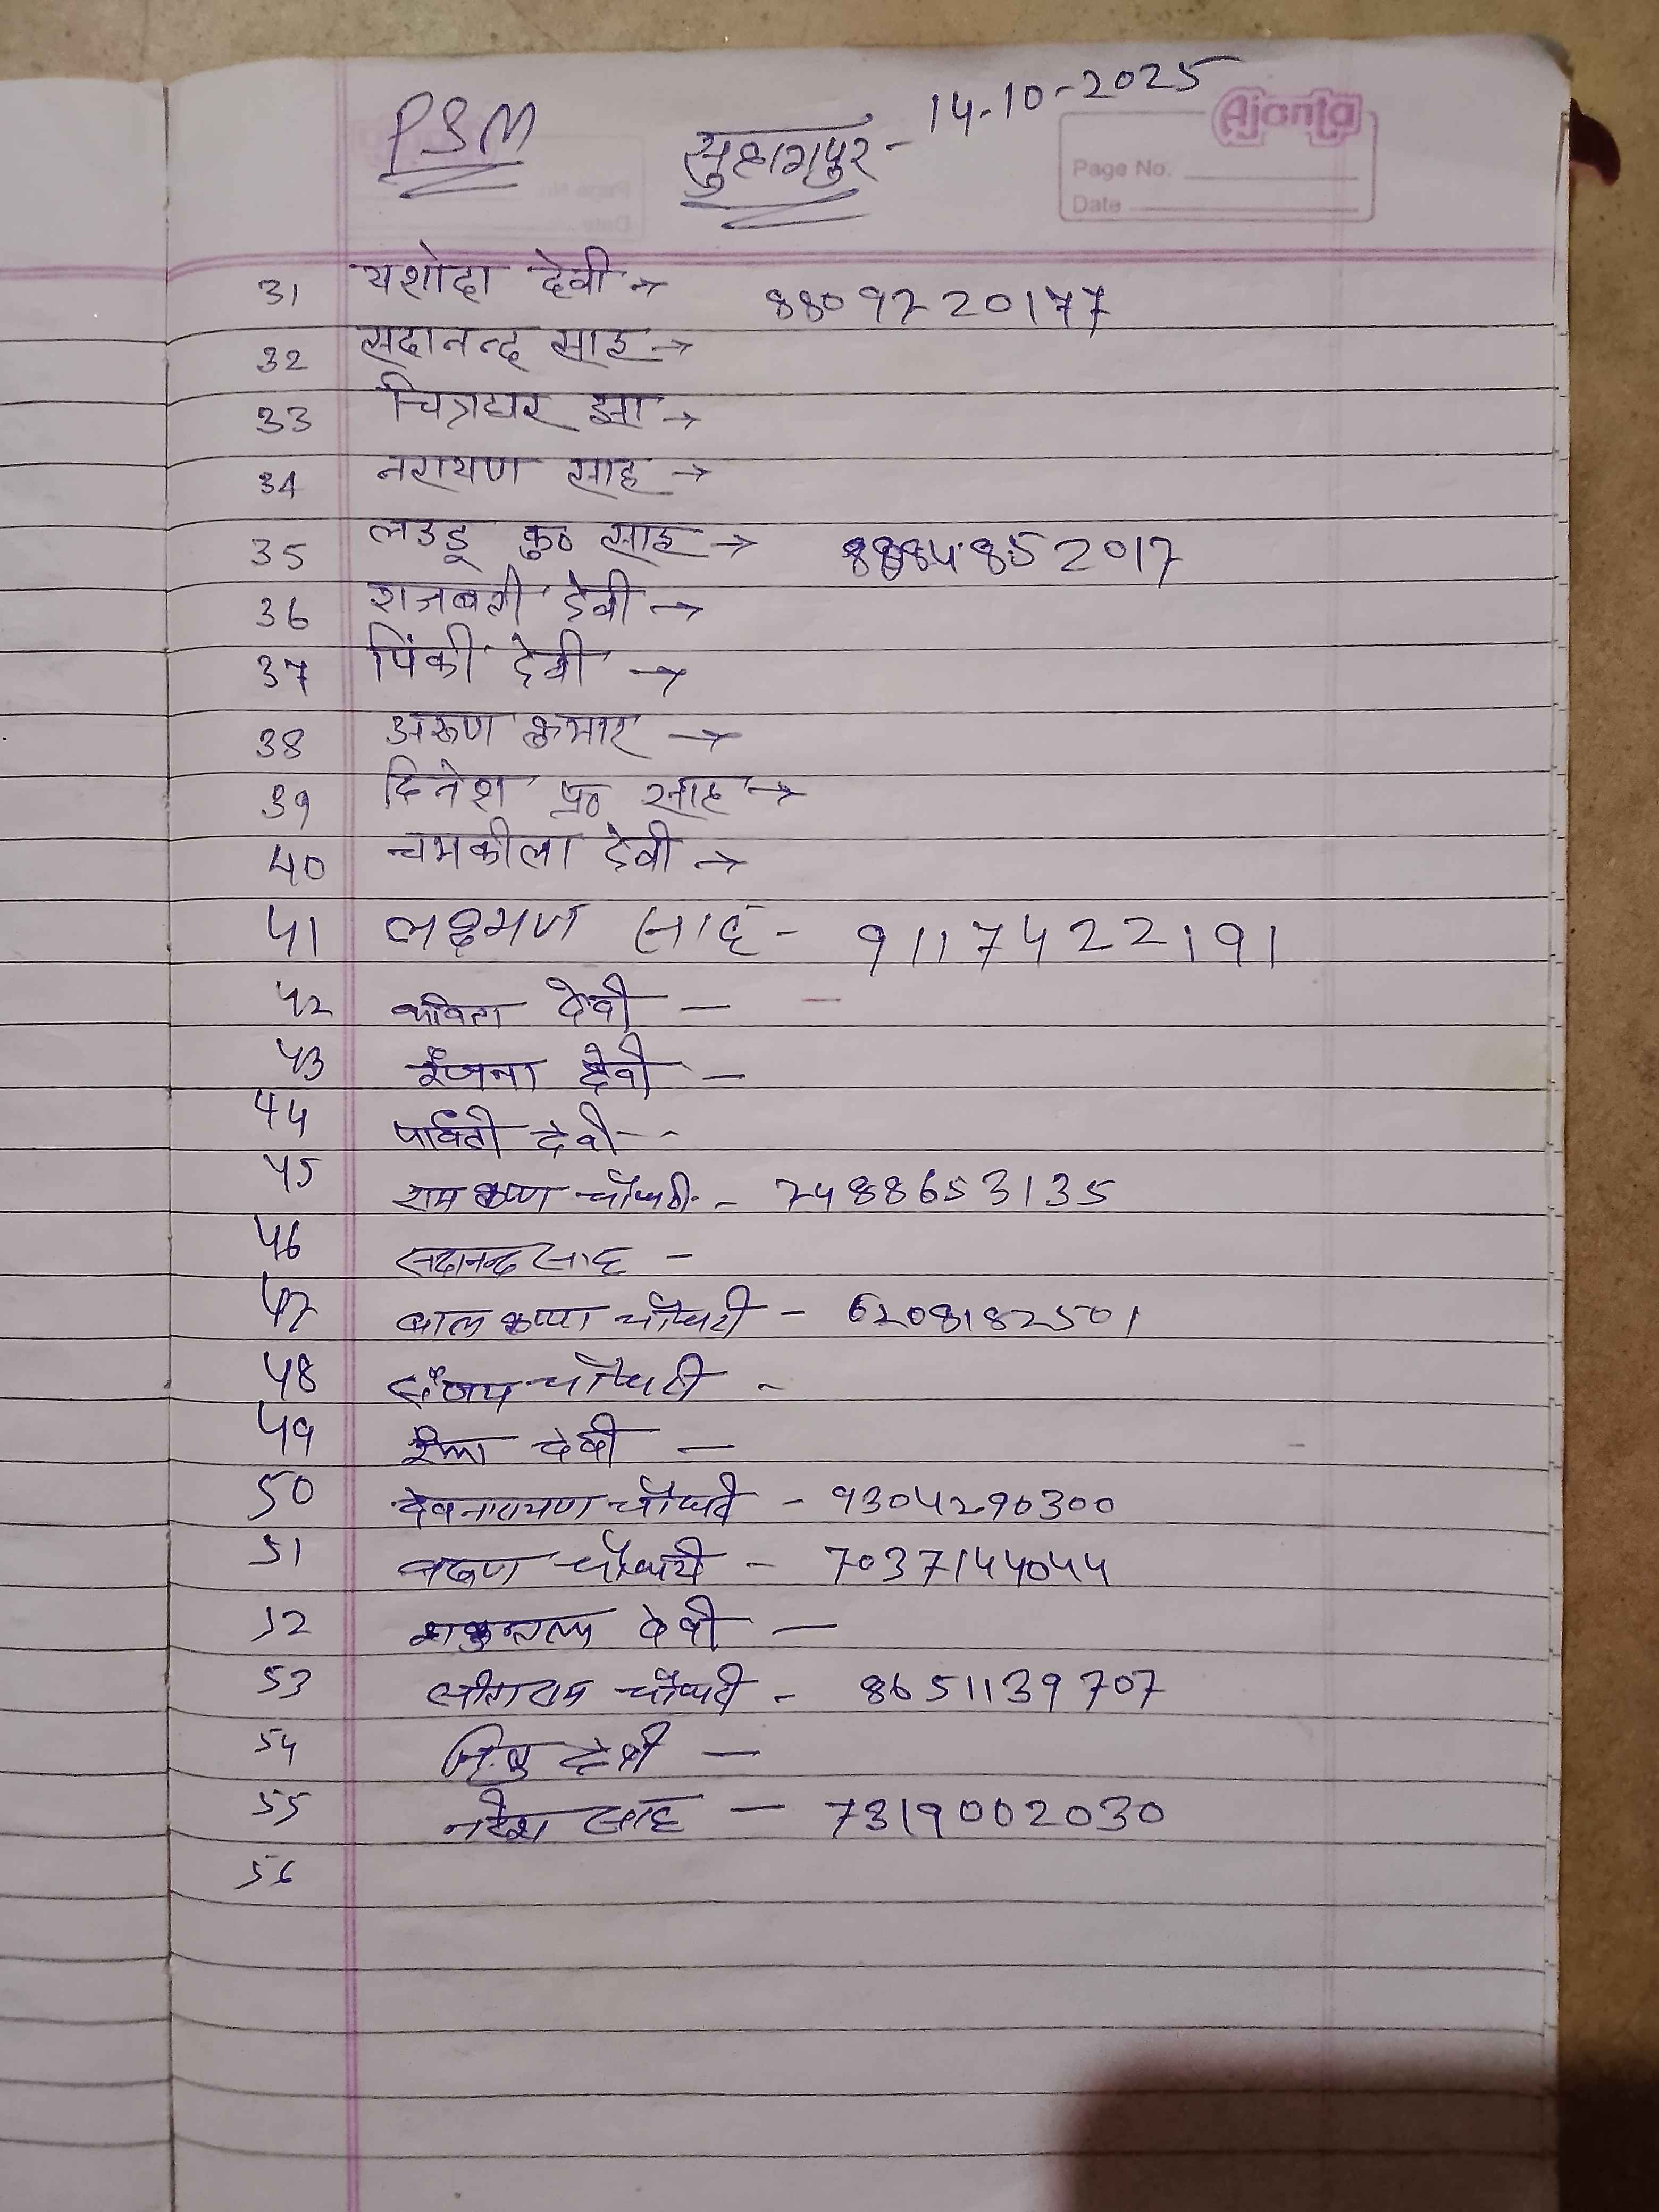 PSM सुहागपुर - 14-10-2025
Ajanta
Page No.
Date
31 यशोदा देवी → 8809220177
32 सदानन्द साह →
33 चित्रधर झा →
34 नरायण साह →
35 लडडू कु० साह → 852017
36 राजबती देवी →
37 पिंकी देवी →
38 अरूण कुमार →
39 दिनेश प्र० साह →
40 चमकीला देवी →
41 लक्ष्मण साह - 9117422191
42 कविता देवी —
43 रंजना देवी —
44 पार्वती देवी --
45 राम कृष्ण चौधरी - 7488653135
46 सदानन्द साह -
47 बाल कृष्ण चौधरी - 6208182501
48 संजय चौधरी -
49 देवी —
50 देवनारायण चौधरी - 9304290300
51 चौधरी - 7037144044
52 शकुन्तला देवी —
53 सीताराम चौधरी - 8651139707
54 देवी —
55 नरेश साह — 7319002030
56